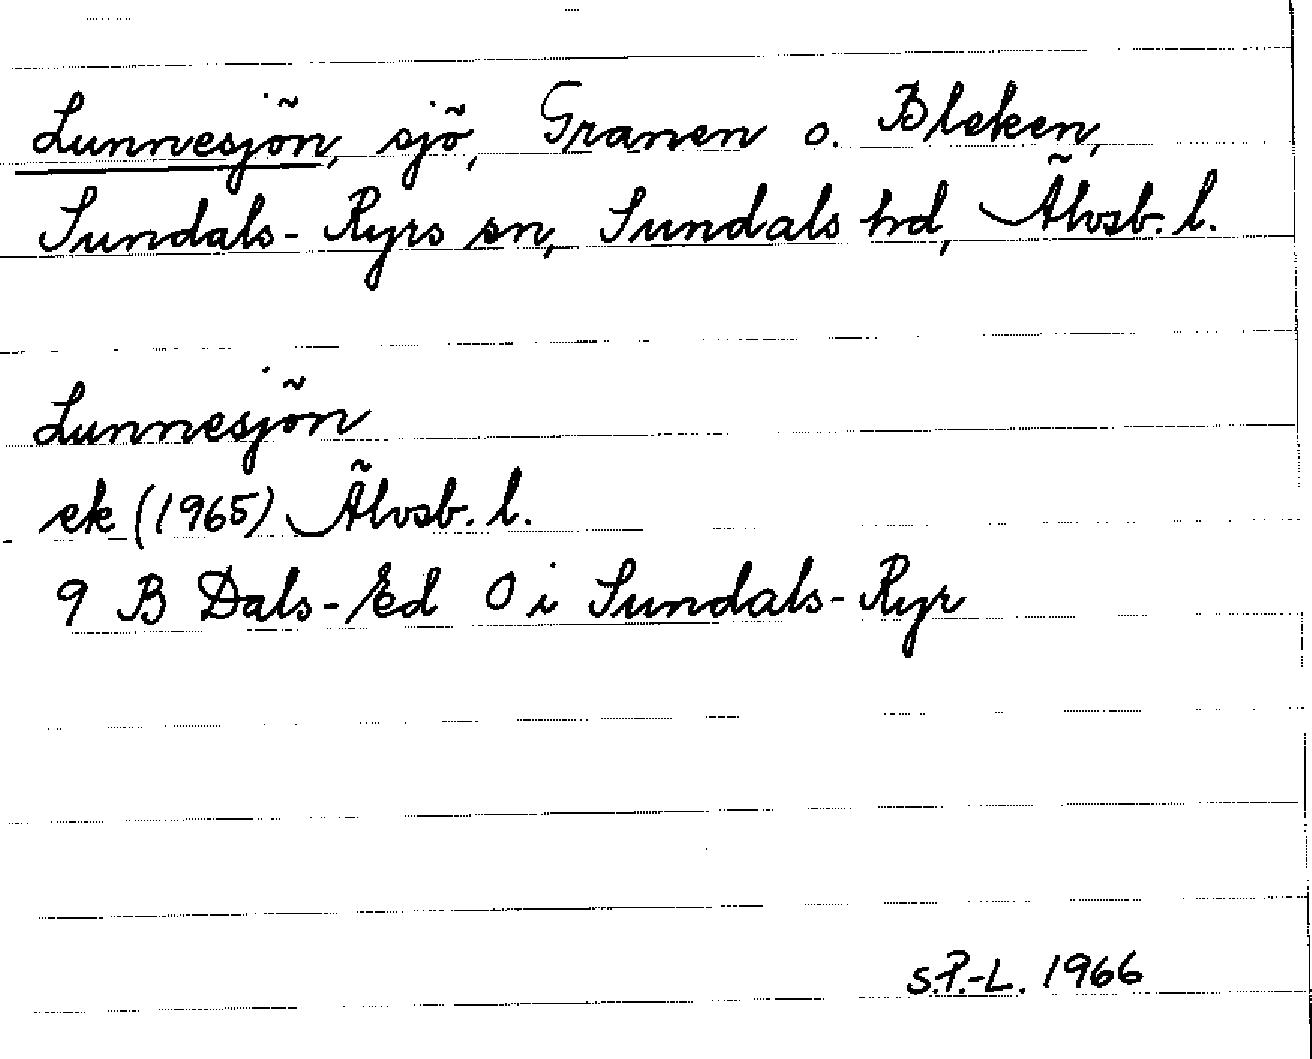 Lunnesjön, sjö, Granen o. Bleken,
Sundals-Ryrs sn, Sundals hd, Älvsb. l.
Lunnesjön
ek (1965) Älvsb. l.
9 B Dals-Ed O i Sundals-Ryr
S.P.-L. 1966